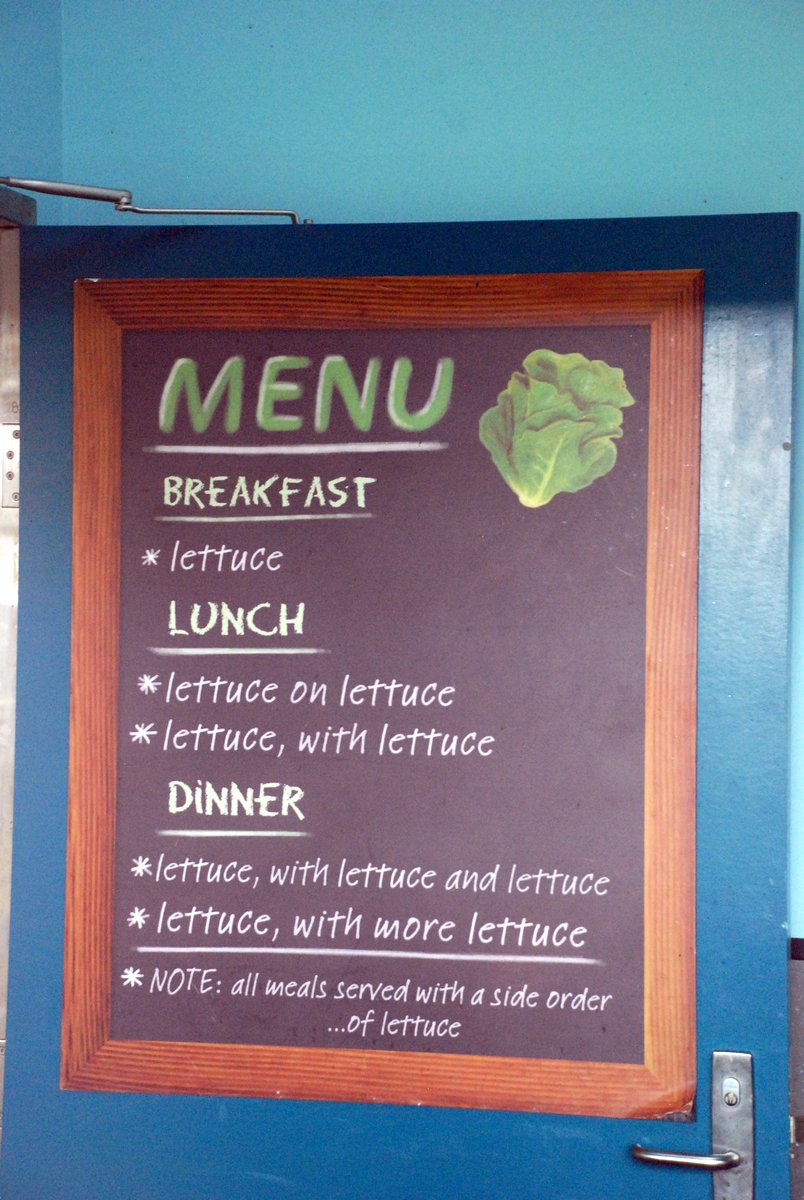 MENU
BREAKFAST
* lettuce
LUNCH
* lettuce on lettuce
* lettuce, with lettuce
DiNNER
* lettuce, with lettuce and lettuce
* lettuce, with more lettuce
* NOTE: all meals served with a side order
...of lettuce